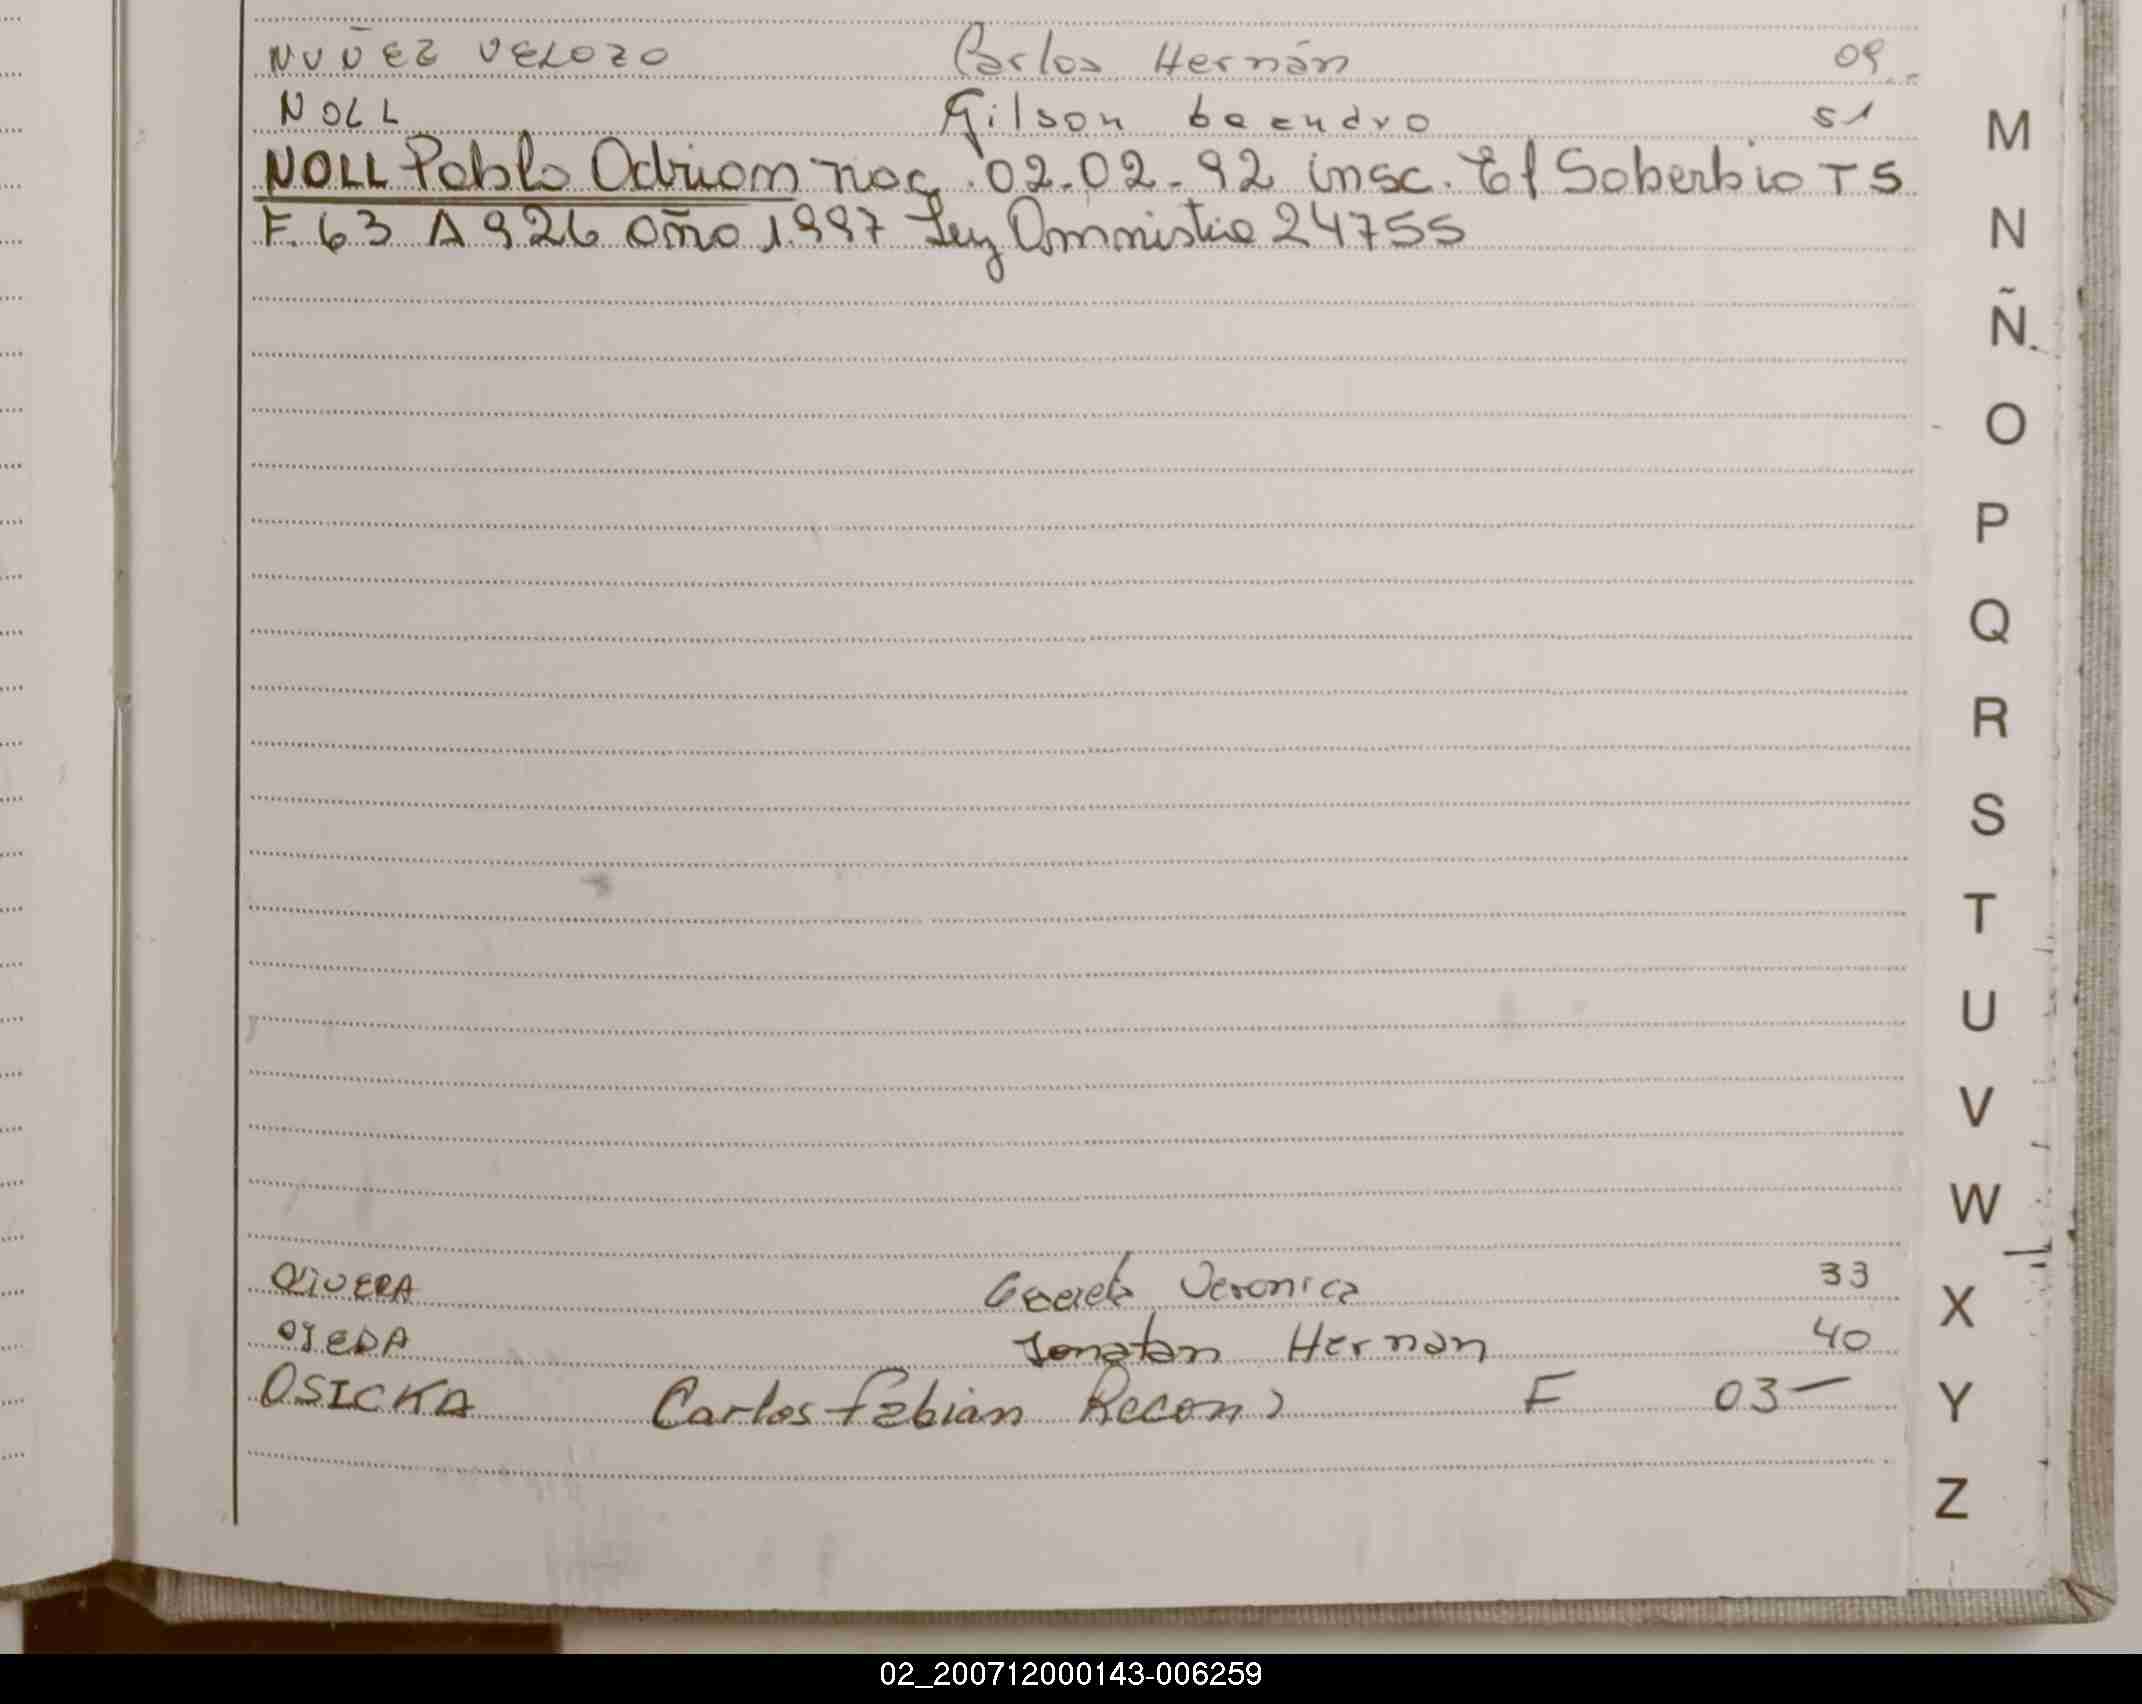 NUÑEZ VELOZO Carlos Hernán 09
NOLL Gilson Leandro 51
NOLL Pablo Adrian nac. 02-02-92 insc. El Soberbio T 5
F. 63 A 926 año 1997 Ley Amnistia 24755
OLIVERA Veronica 33
OJEDA Jonatan Hernan 40
OSICKA Carlos Fabian Recon) F 03 —
M
N
Ñ
O
P
Q
R
S
T
U
V
W
X
Y
Z
02_200712000143-006259